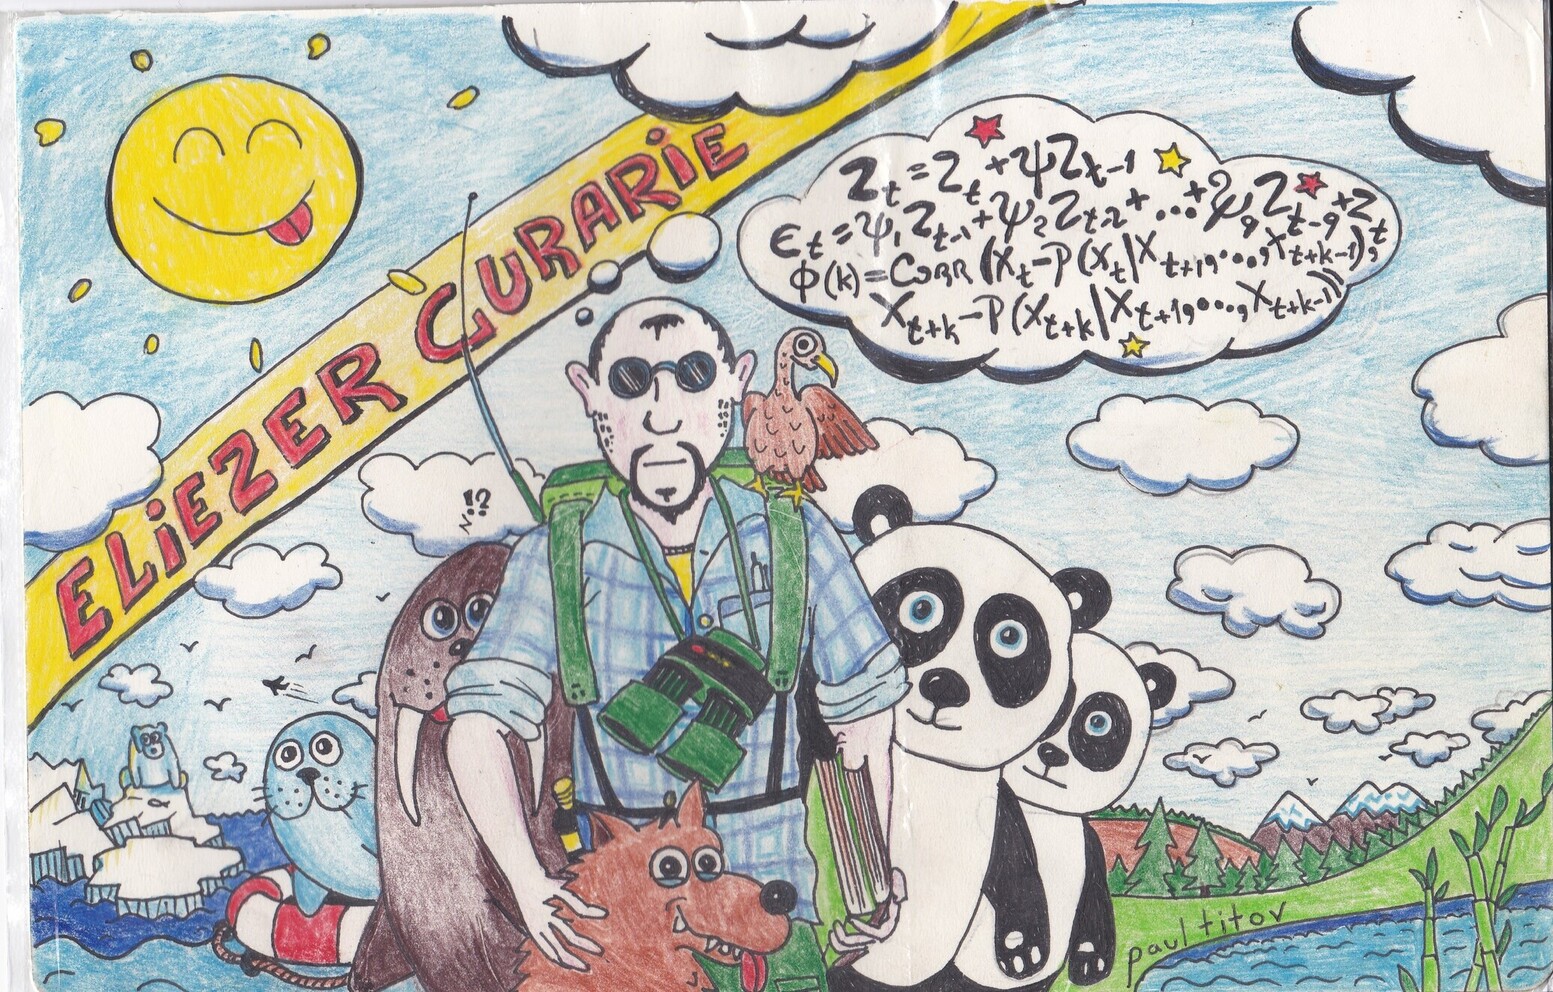 ELiEZER CURARiE
Z_t = Z_t + ψZ_{t-1}
ϵ_t = ψ_1 Z_{t-1} + ψ_2 Z_{t-2} + ... + ψ_q Z_{t-q} + Z_t
ϕ(k) = CORR (X_t - P(X_t|X_{t+1}, ..., X_{t+k-1}),
X_{t+k} - P(X_{t+k}|X_{t+1}, ..., X_{t+k-1}))
paul titov